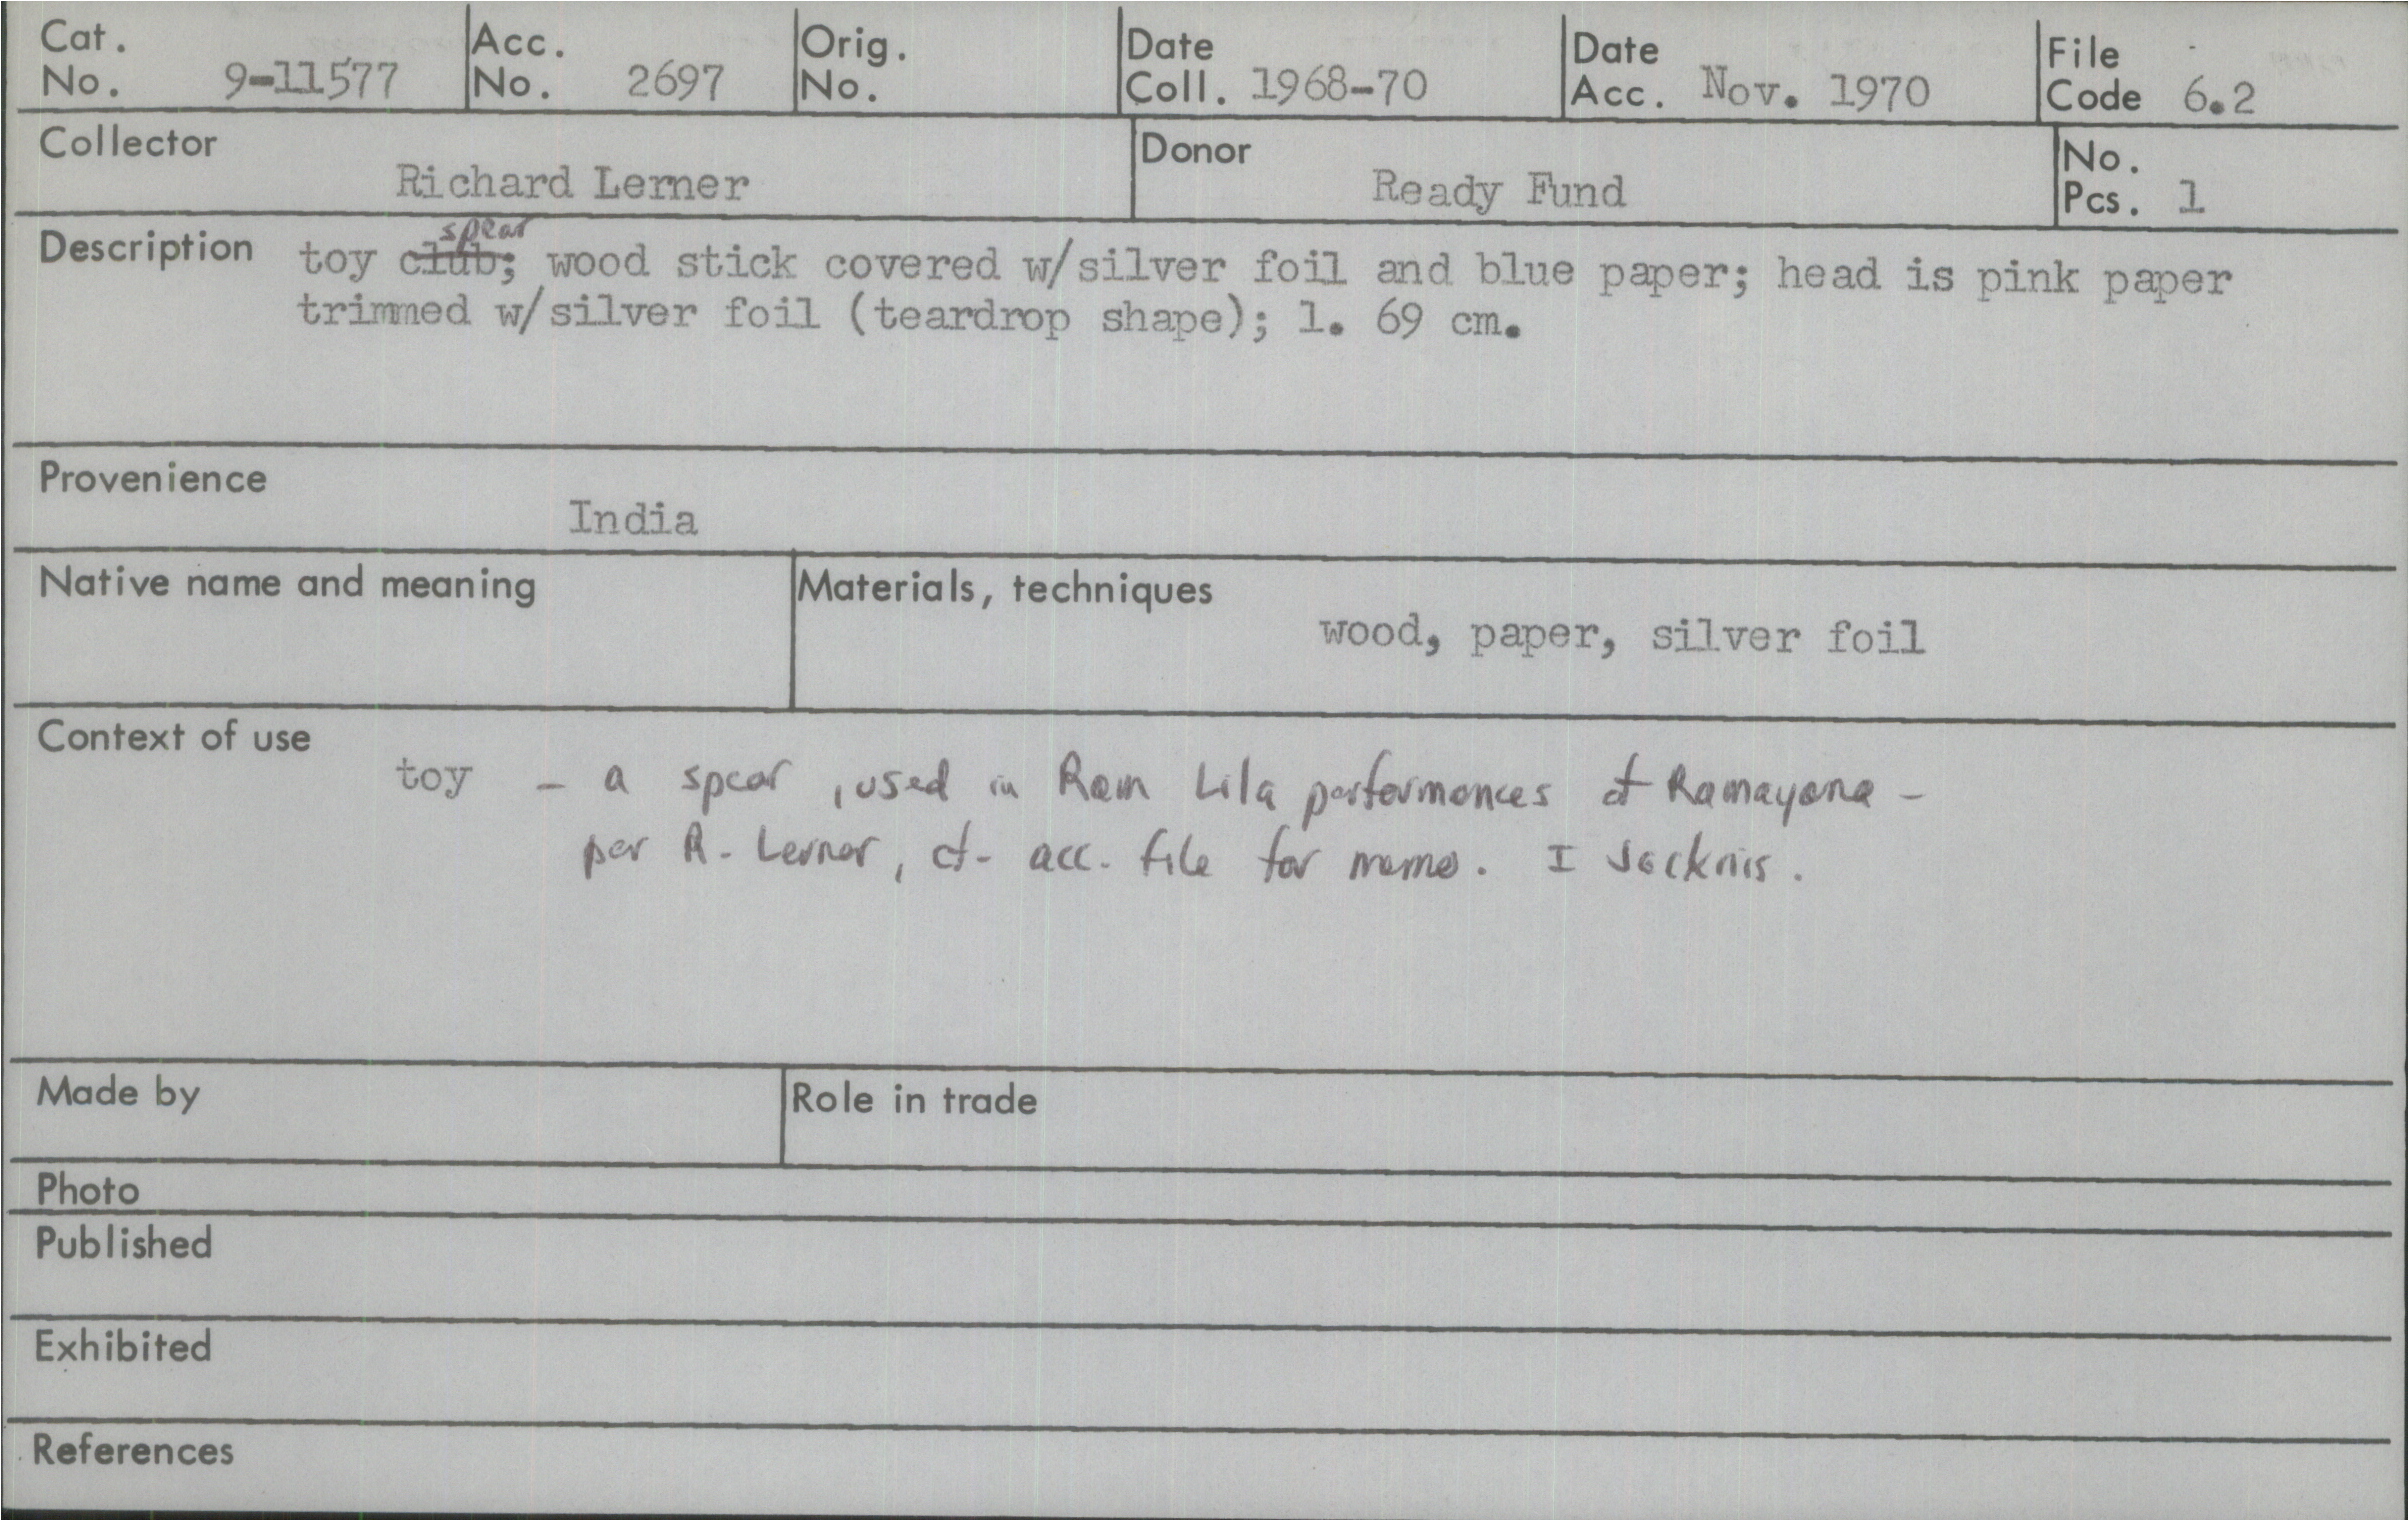 Cat. No. 9-11577
Acc. No. 2697
Orig. No.
Date Coll. 1968-70
Date Acc. Nov. 1970
File Code 6.2
Collector Richard Lerner
Donor Ready Fund
No. Pcs. 1
spear
Description toy club; wood stick covered w/silver foil and blue paper; head is pink paper
trimmed w/silver foil (teardrop shape); l. 69 cm.
Provenience
India
Native name and meaning
Materials, techniques
wood, paper, silver foil
Context of use
toy - a spear, used in Ram Lila performances of Ramayana -
per R. Lerner, cf. acc. file for memo. I Jacknis.
Made by
Role in trade
Photo
Published
Exhibited
References